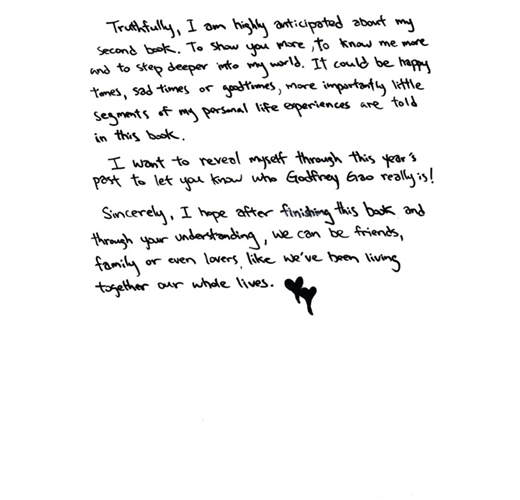 Truthfully, I am highly anticipated about my
second book. To show you more, to know me more
and to step deeper into my world. It could be happy
times, sad times or goodtimes, more importantly little
segments of my personal life experiences are told
in this book.
I want to reveal myself through this year's
past to let you know who Godfrey Gao really is!
Sincerely, I hope after finishing this book and
through your understanding, we can be friends,
family or even lovers, like we've been living
together our whole lives.